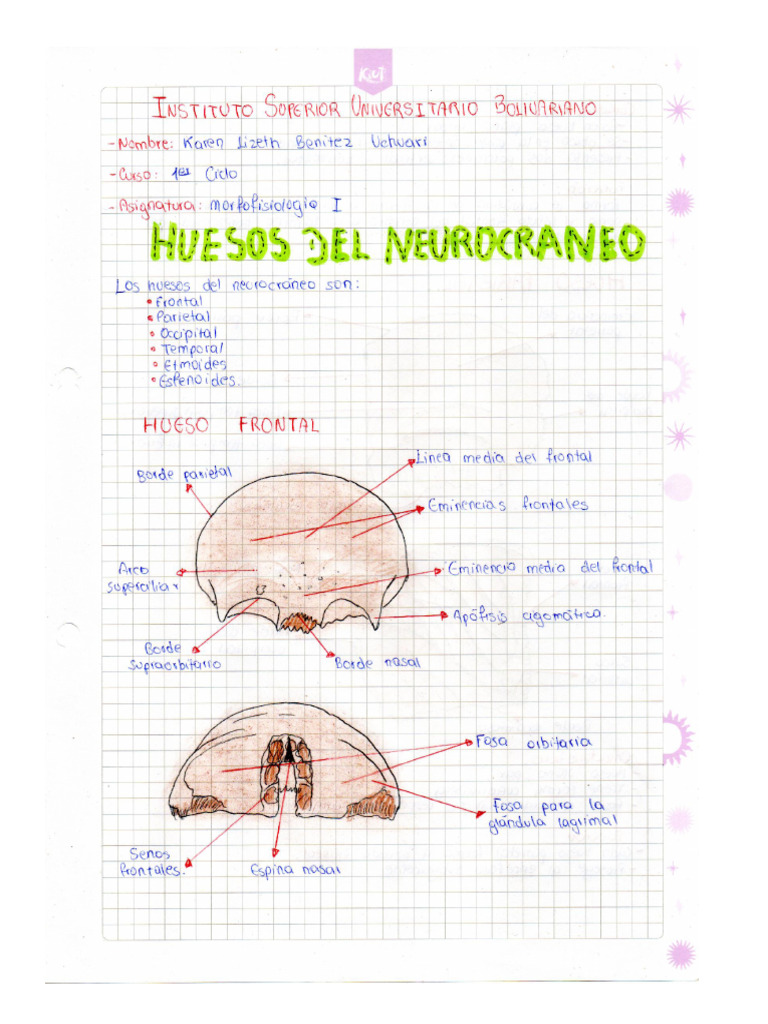 Kiut
INSTITUTO SUPERIOR UNIVERSITARIO BOLIVARIANO
- Nombre: Karen Lizeth Benitez Uchuari
- Curso: 1er Ciclo
- Asignatura: morfofisiologia I
HUESOS DEL NEUROCRANEO
Los huesos del neurocráneo son:
• Frontal
• Parietal
• Occipital
• Temporal
• Etmoides
• Esfenoides.
HUESO FRONTAL
Linea media del frontal
Borde parietal
Eminencias frontales
Arco
superciliar
Eminencia media del frontal
Apófisis cigomática.
Borde
supraorbitario
Borde nasal
Fosa orbitaria
Fosa para la
glándula lagrimal
Senos
frontales.
Espina nasal